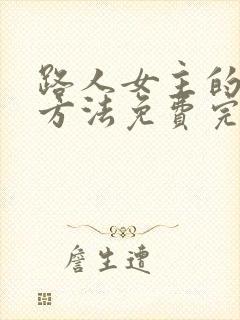 路人女主的
方法免费完
詹生遭